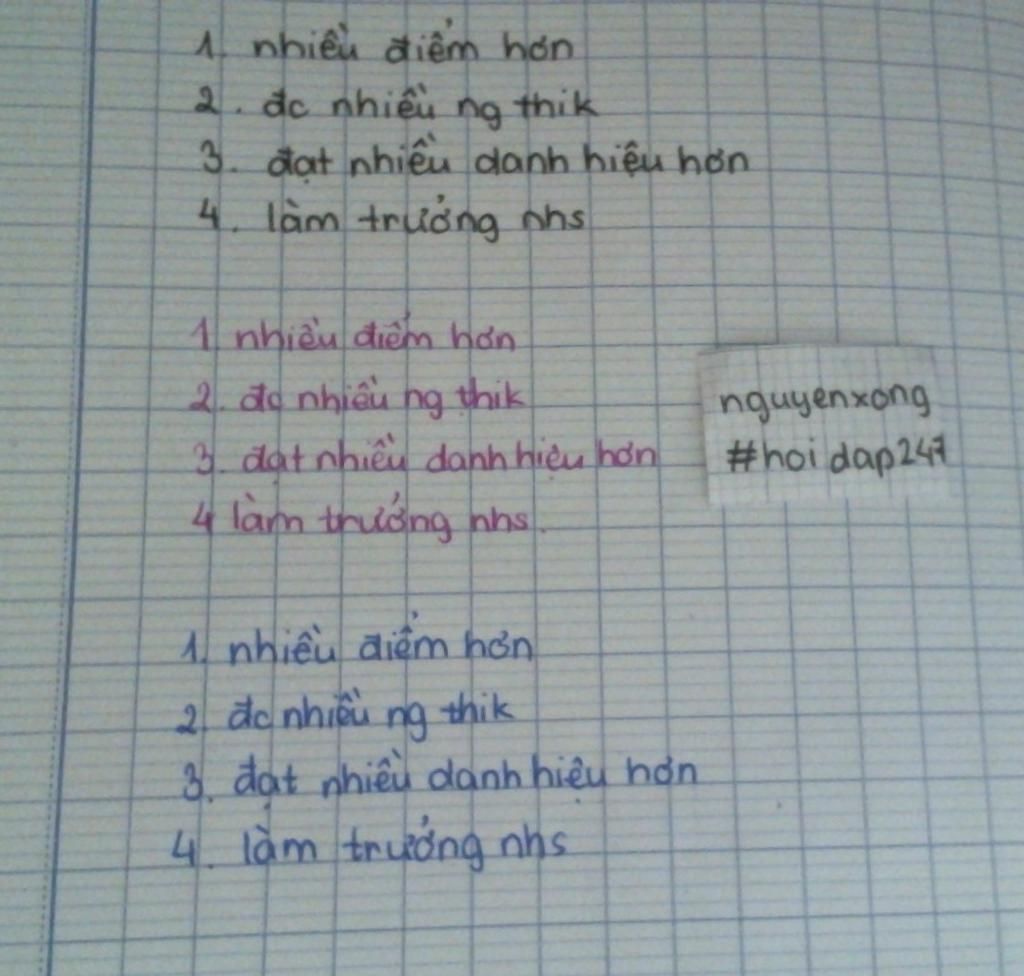 1. nhiều điểm hơn
2. đc nhiều ng thik
3. đạt nhiều danh hiệu hơn
4. làm trưởng nhs
1 nhiều điểm hơn
2. đc nhiều ng thik
3. đạt nhiều danh hiệu hơn
4 làm trưởng nhs.
nguyenxong
#hoidap247
1. nhiều điểm hơn
2 đc nhiều ng thik
3. đạt nhiều danh hiệu hơn
4. làm trưởng nhs